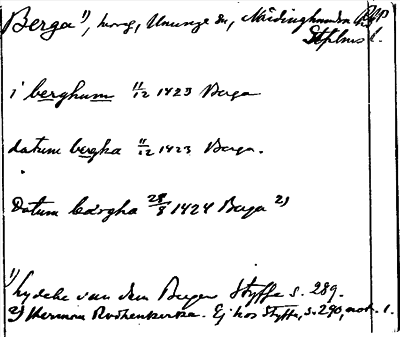 Berga 1), herrg, Ununge sn, Närdinghundra
Sthlms l.
i berghum 11/12 1423 Berga
datum bergha 11/12 1423 Berga.
Datum bærgha 28/8 1424 Berga 2)
1) hydeke van dem Bergen Styffe s. 289.
2) Herman Rodhenkerka. Ej hos Styffe, s. 290, not. 1.